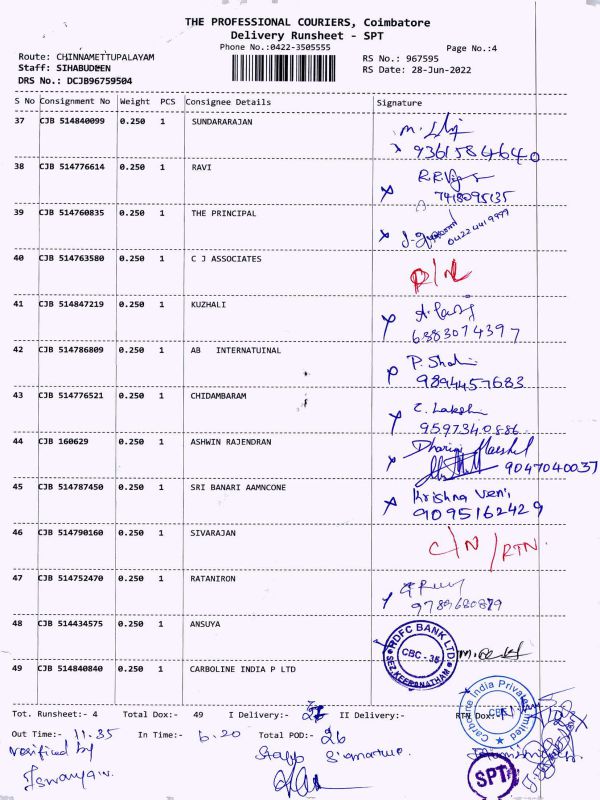 THE PROFESSIONAL COURIERS, Coimbatore
Delivery Runsheet - SPT
Phone No.:0422-3505555
Page No.:4
Route: CHINNAMETTUPALAYAM
Staff: SIHABUDEEN
DRS No.: DCJB96759504
RS No.: 967595
RS Date: 28-Jun-2022
S No Consignment No Weight PCS Consignee Details Signature
37 CJB 514840099 0.250 1 SUNDARARAJAN
9361584640
38 CJB 514776614 0.250 1 RAVI
7418095135
39 CJB 514760835 0.250 1 THE PRINCIPAL
0422 4419999
40 CJB 514763580 0.250 1 C J ASSOCIATES
41 CJB 514847219 0.250 1 KUZHALI
6383074397
42 CJB 514786809 0.250 1 AB INTERNATUINAL
9894457683
43 CJB 514776521 0.250 1 CHIDAMBARAM
C. Lakshmi
9597340886
44 CJB 160629 0.250 1 ASHWIN RAJENDRAN
9047040037
45 CJB 514787450 0.250 1 SRI BANARI AAMNCONE
Krishna Veni
9095162429
46 CJB 514790160 0.250 1 SIVARAJAN
C/N / RTN.
47 CJB 514752470 0.250 1 RATANIRON
9789680879
48 CJB 514434575 0.250 1 ANSUYA
HDFC BANK LTD
CBC - 35
SEZ KEERANATHAM
49 CJB 514840840 0.250 1 CARBOLINE INDIA P LTD
Carboline India Private Limited
Tot. Runsheet:- 4 Total Dox:- 49 I Delivery:- 26 II Delivery:- RTN Dox:-
Out Time:- 11.35 In Time:- 6.20 Total POD:- 26
Verified by
Staff Signature
SPT